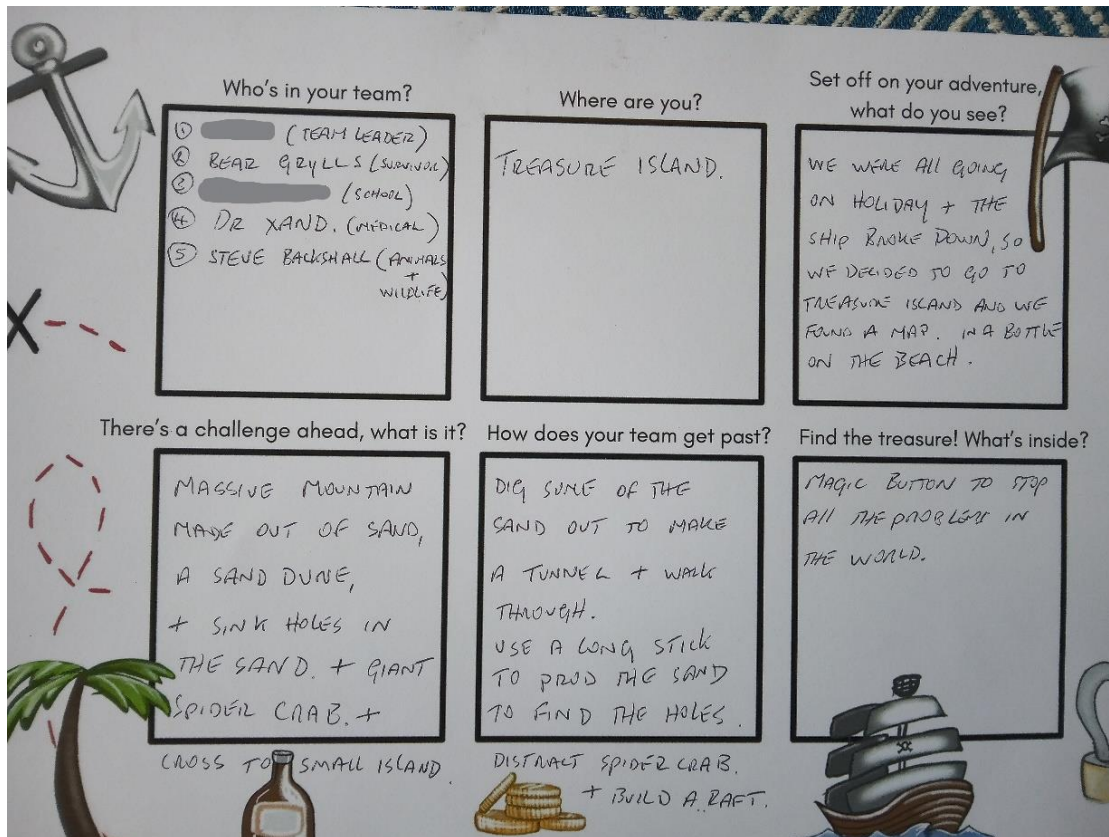 Who's in your team?
① (TEAM LEADER)
② BEAR GRYLLS (SURVIVOR)
③ (SCHOOL)
④ DR XAND. (MEDICAL)
⑤ STEVE BACKSHALL (ANIMALS
+
WILDLIFE)
Where are you?
TREASURE ISLAND.
Set off on your adventure,
what do you see?
WE WERE ALL GOING
ON HOLIDAY + THE
SHIP BROKE DOWN, SO
WE DECIDED TO GO TO
TREASURE ISLAND AND WE
FOUND A MAP. IN A BOTTLE
ON THE BEACH.
X
There's a challenge ahead, what is it?
MASSIVE MOUNTAIN
MADE OUT OF SAND,
A SAND DUNE,
+ SINK HOLES IN
THE SAND. + GIANT
SPIDER CRAB. +
CROSS TO SMALL ISLAND.
How does your team get past?
DIG SOME OF THE
SAND OUT TO MAKE
A TUNNEL + WALK
THROUGH.
USE A LONG STICK
TO PROD THE SAND
TO FIND THE HOLES.
DISTRACT SPIDER CRAB.
+ BUILD A RAFT.
Find the treasure! What's inside?
MAGIC BUTTON TO STOP
ALL THE PROBLEMS IN
THE WORLD.